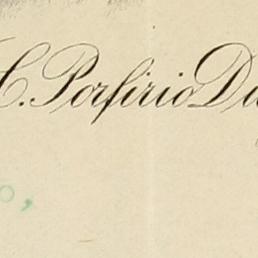 C. Porfirio D
o,